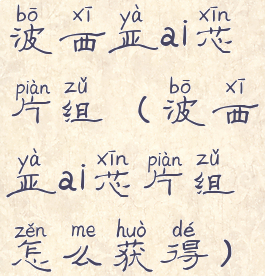 bō xī yà xīn
波西亚ai芯
piàn zǔ bō xī
片组（波西
yà xīn piàn zǔ
亚ai芯片组
zěn me huò dé
怎么获得）